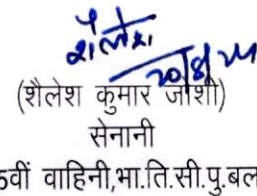 शैलेश
20/8/24
(शैलेश कुमार जोशी)
सेनानी
5वीं वाहिनी,भा.ति.सी.पु.बल